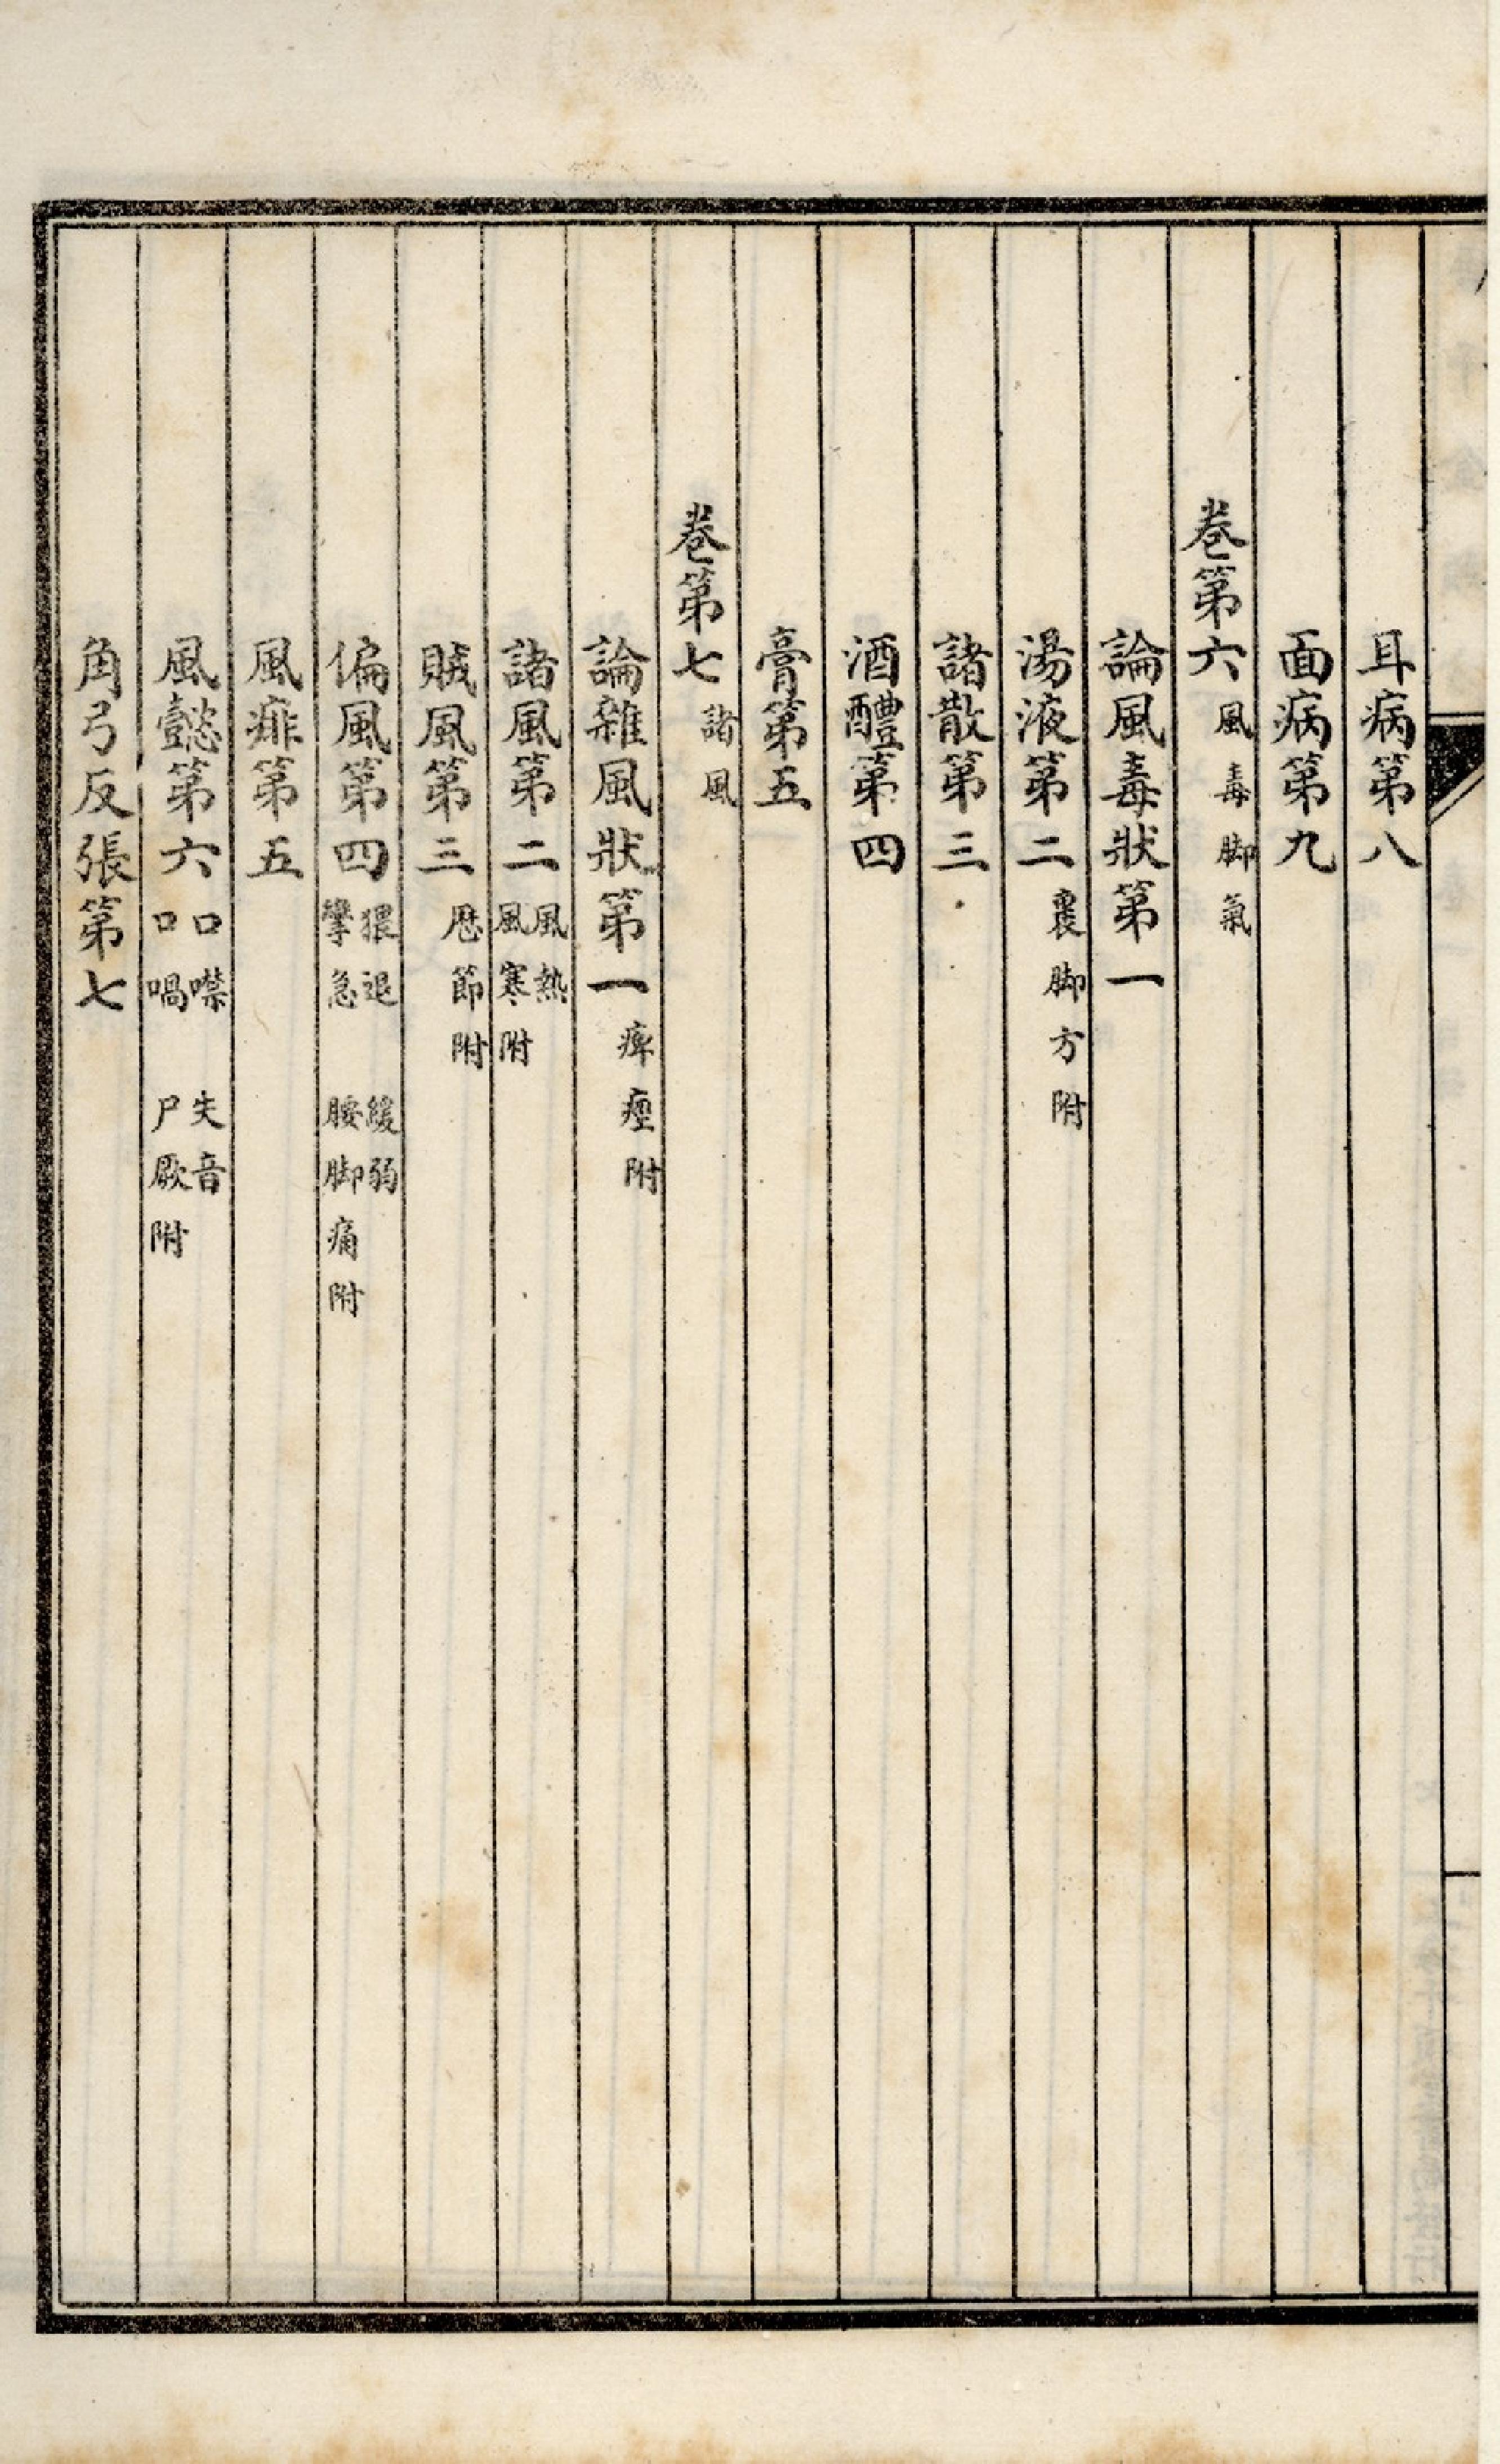 耳病第八
面病第九
卷第六 風毒脚氣
論風毒狀第一
湯液第二 喪脚方附
諸散第三
酒醴第四
膏第五
卷第七 諸風
論雜風狀第一 痺痙附
諸風第二 風熱 風寒附
賊風第三 歷節附
偏風第四 猥退 攣急 緩弱 腰脚痛附
風痱第五
風懿第六 口噤 口喎 失音 尸厥附
角弓反張第七